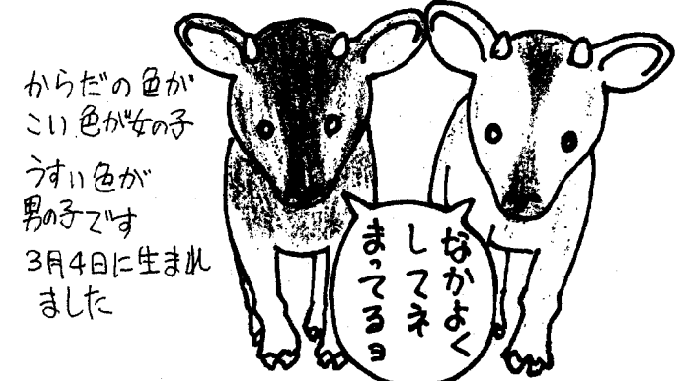 からだの色が
こい色が女の子
うすい色が
男の子です
3月4日に生まれ
ました
なかよく
してネ
まってるヨ